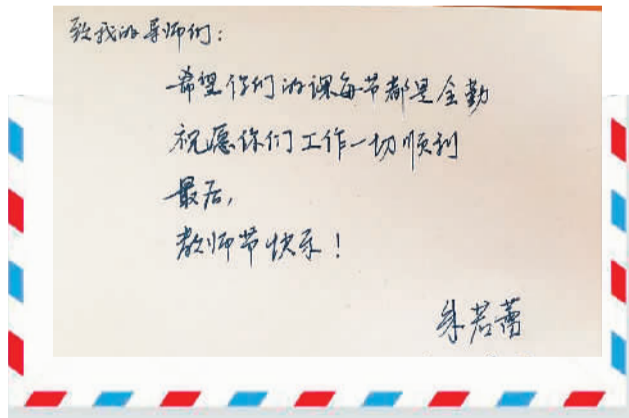 致我的导师们：
希望你们的课每节都是全勤
祝愿你们工作一切顺利
最后，
教师节快乐！
朱若蕾